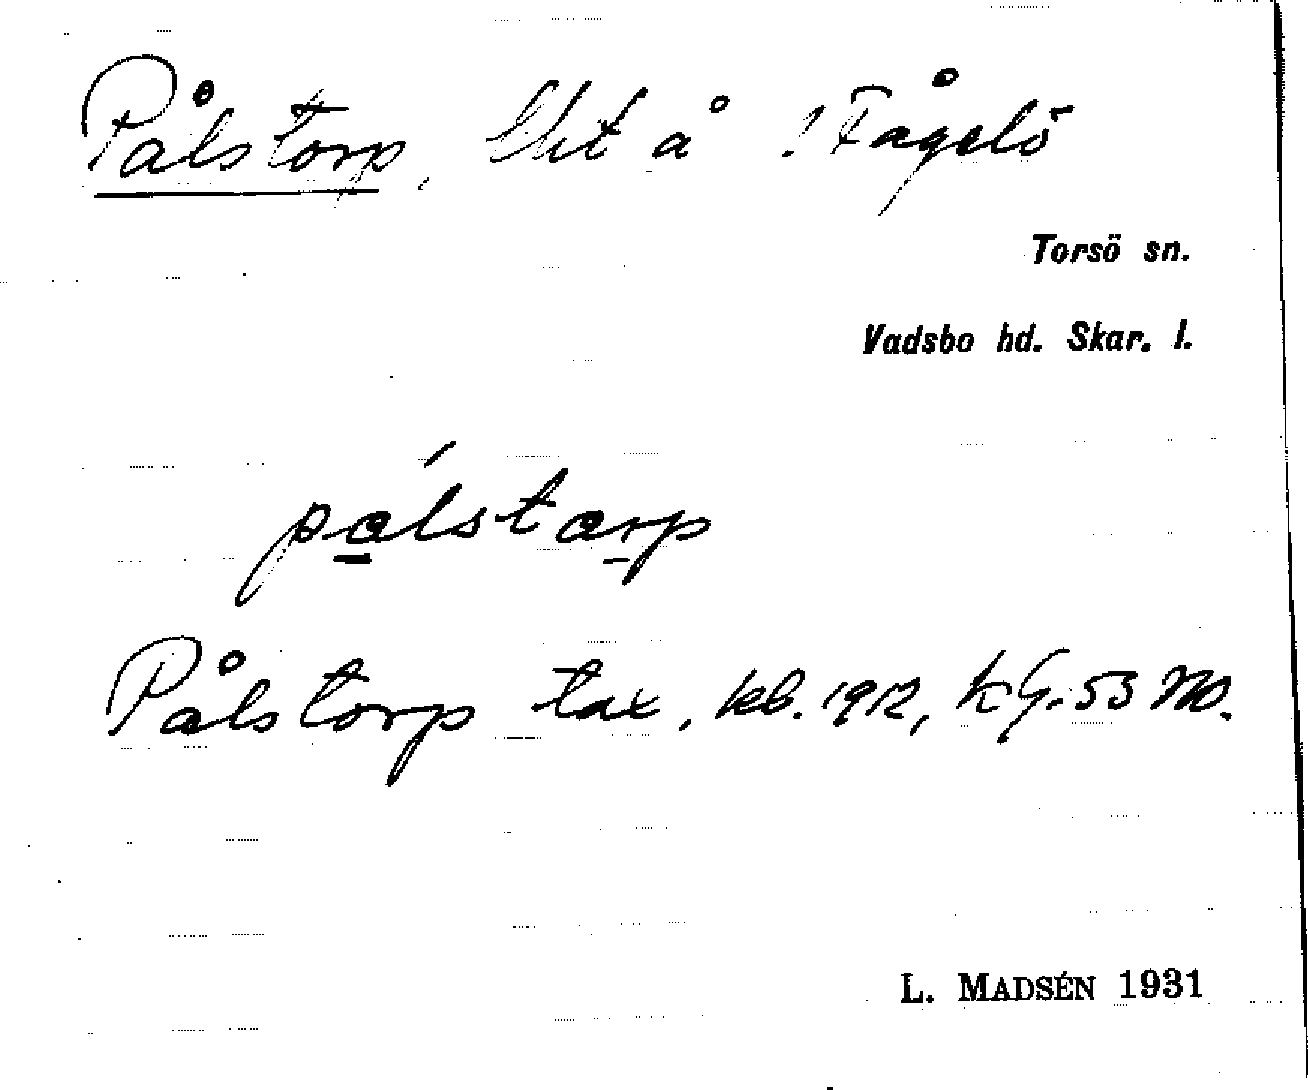 Pålstorp, lht å !Fågelö
Torsö sn.
Vadsbo hd. Skar. l.
pålstorp
Pålstorp tax, kb. 1912, kG. 53 M.
L. MADSÉN 1931